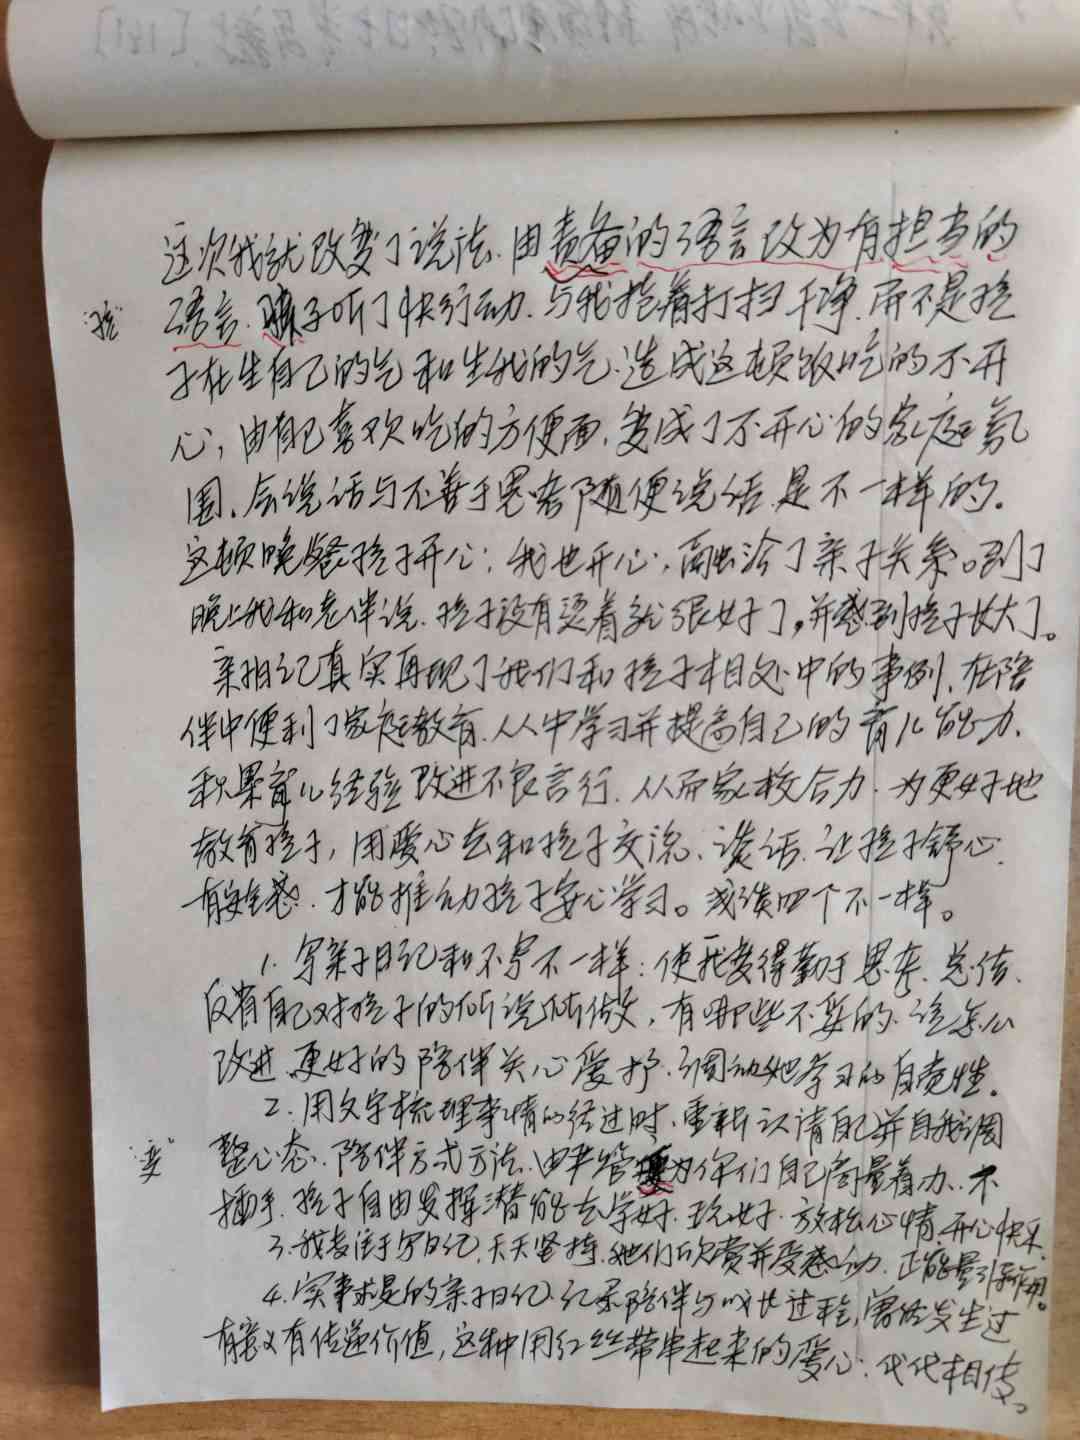 这次我就改变了说法、由责备的语言改为有担当的
孩
语言、孩子听了快行动、与我抢着打扫干净、而不是孩
子在生自己的气和生我的气、造成这顿饭吃的不开
心，由自己喜欢吃的方便面、变成了不开心的家庭氛
围、会说话与不善于思考随便说话、是不一样的。
这顿晚餐孩子开心；我也开心，融洽了亲子关系。到了
晚上我和老伴说、孩子没有烫着就很好了，并感到孩子长大了。
亲子日记真实再现了我们和孩子相处中的事例、在陪
伴中便利了家庭教育、从中学习并提高自己的育儿能力、
积累育儿经验改进不良言行、从而家校合力、为更好地
教育孩子，用爱心去和孩子交流、谈话、让孩子舒心、
有安全感、才能推动孩子安心学习。我谈四个不一样。
1、写亲子日记和不写不一样：使我变得勤于思考、总结、
反省自己对孩子的所说所做，有哪些不妥的、该怎么
改进、更好的陪伴关心爱护、调动她学习的自觉性。
2、用文字梳理事情的经过时、重新认清自己并自我调
变
整心态、陪伴方式方法、由严管变为你们自己商量着办、不
插手、孩子自由发挥潜能去学好、玩好、放松心情、开心快乐、
3、我专注于写日记、天天坚持、她们欣赏并受感动、正能量引导作用。
4、实事求是的亲子日记、记录陪伴与成长过程，曾经发生过
有意义有传递价值，这种用红丝带串起来的爱心、代代相传。